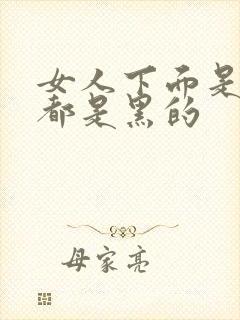 女人下面是
都是黑的
母家亮